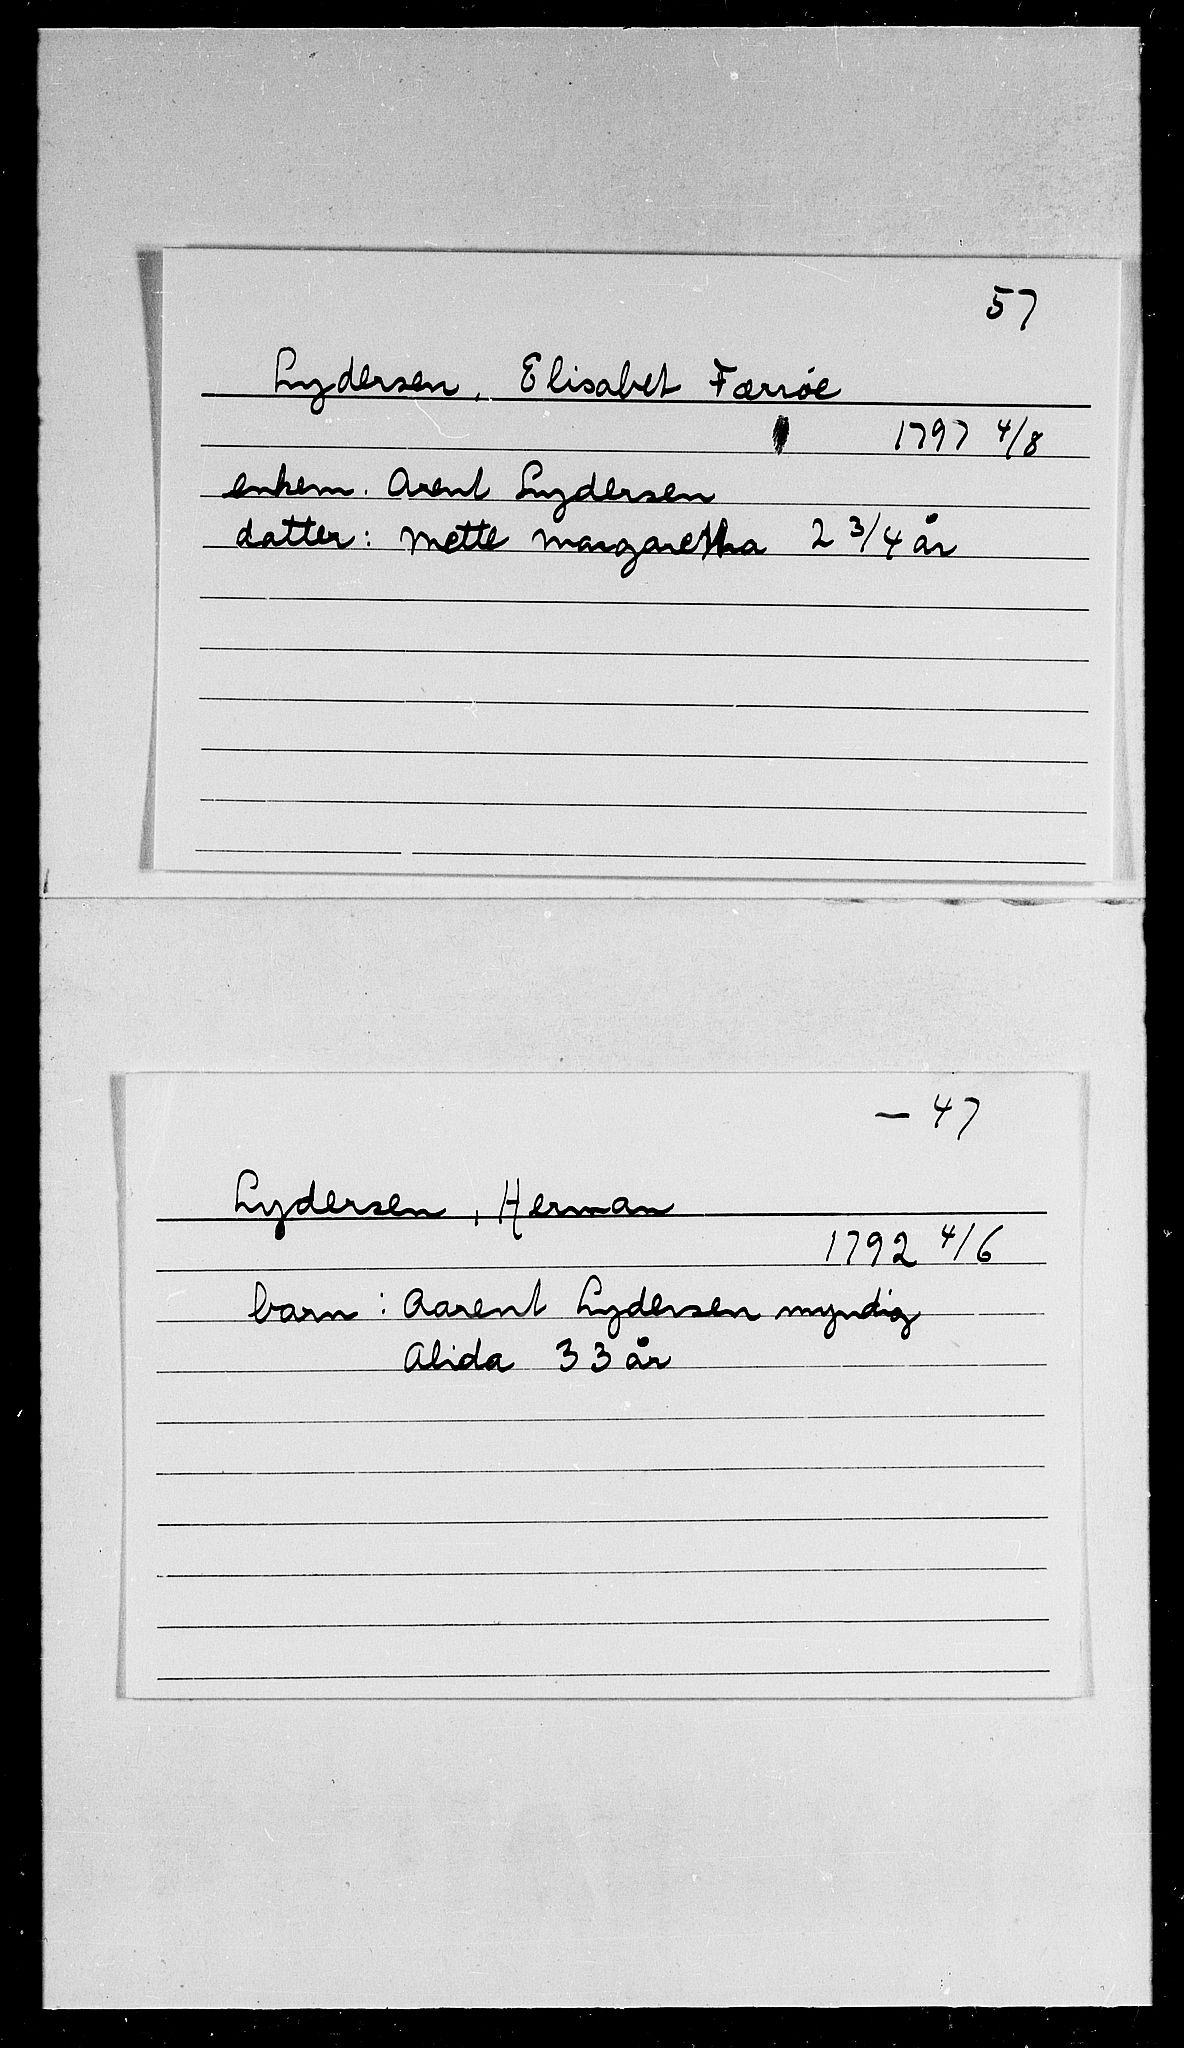 57
Lydersen, Elisabet Færrøe
1797 4/8
enkem. Arent Lydersen
datter: Mette Margaretha 2 3/4 år
— 47
Lydersen, Herman
1792 4/6
barn: Aarent Lydersen myndig
Alida 33 år